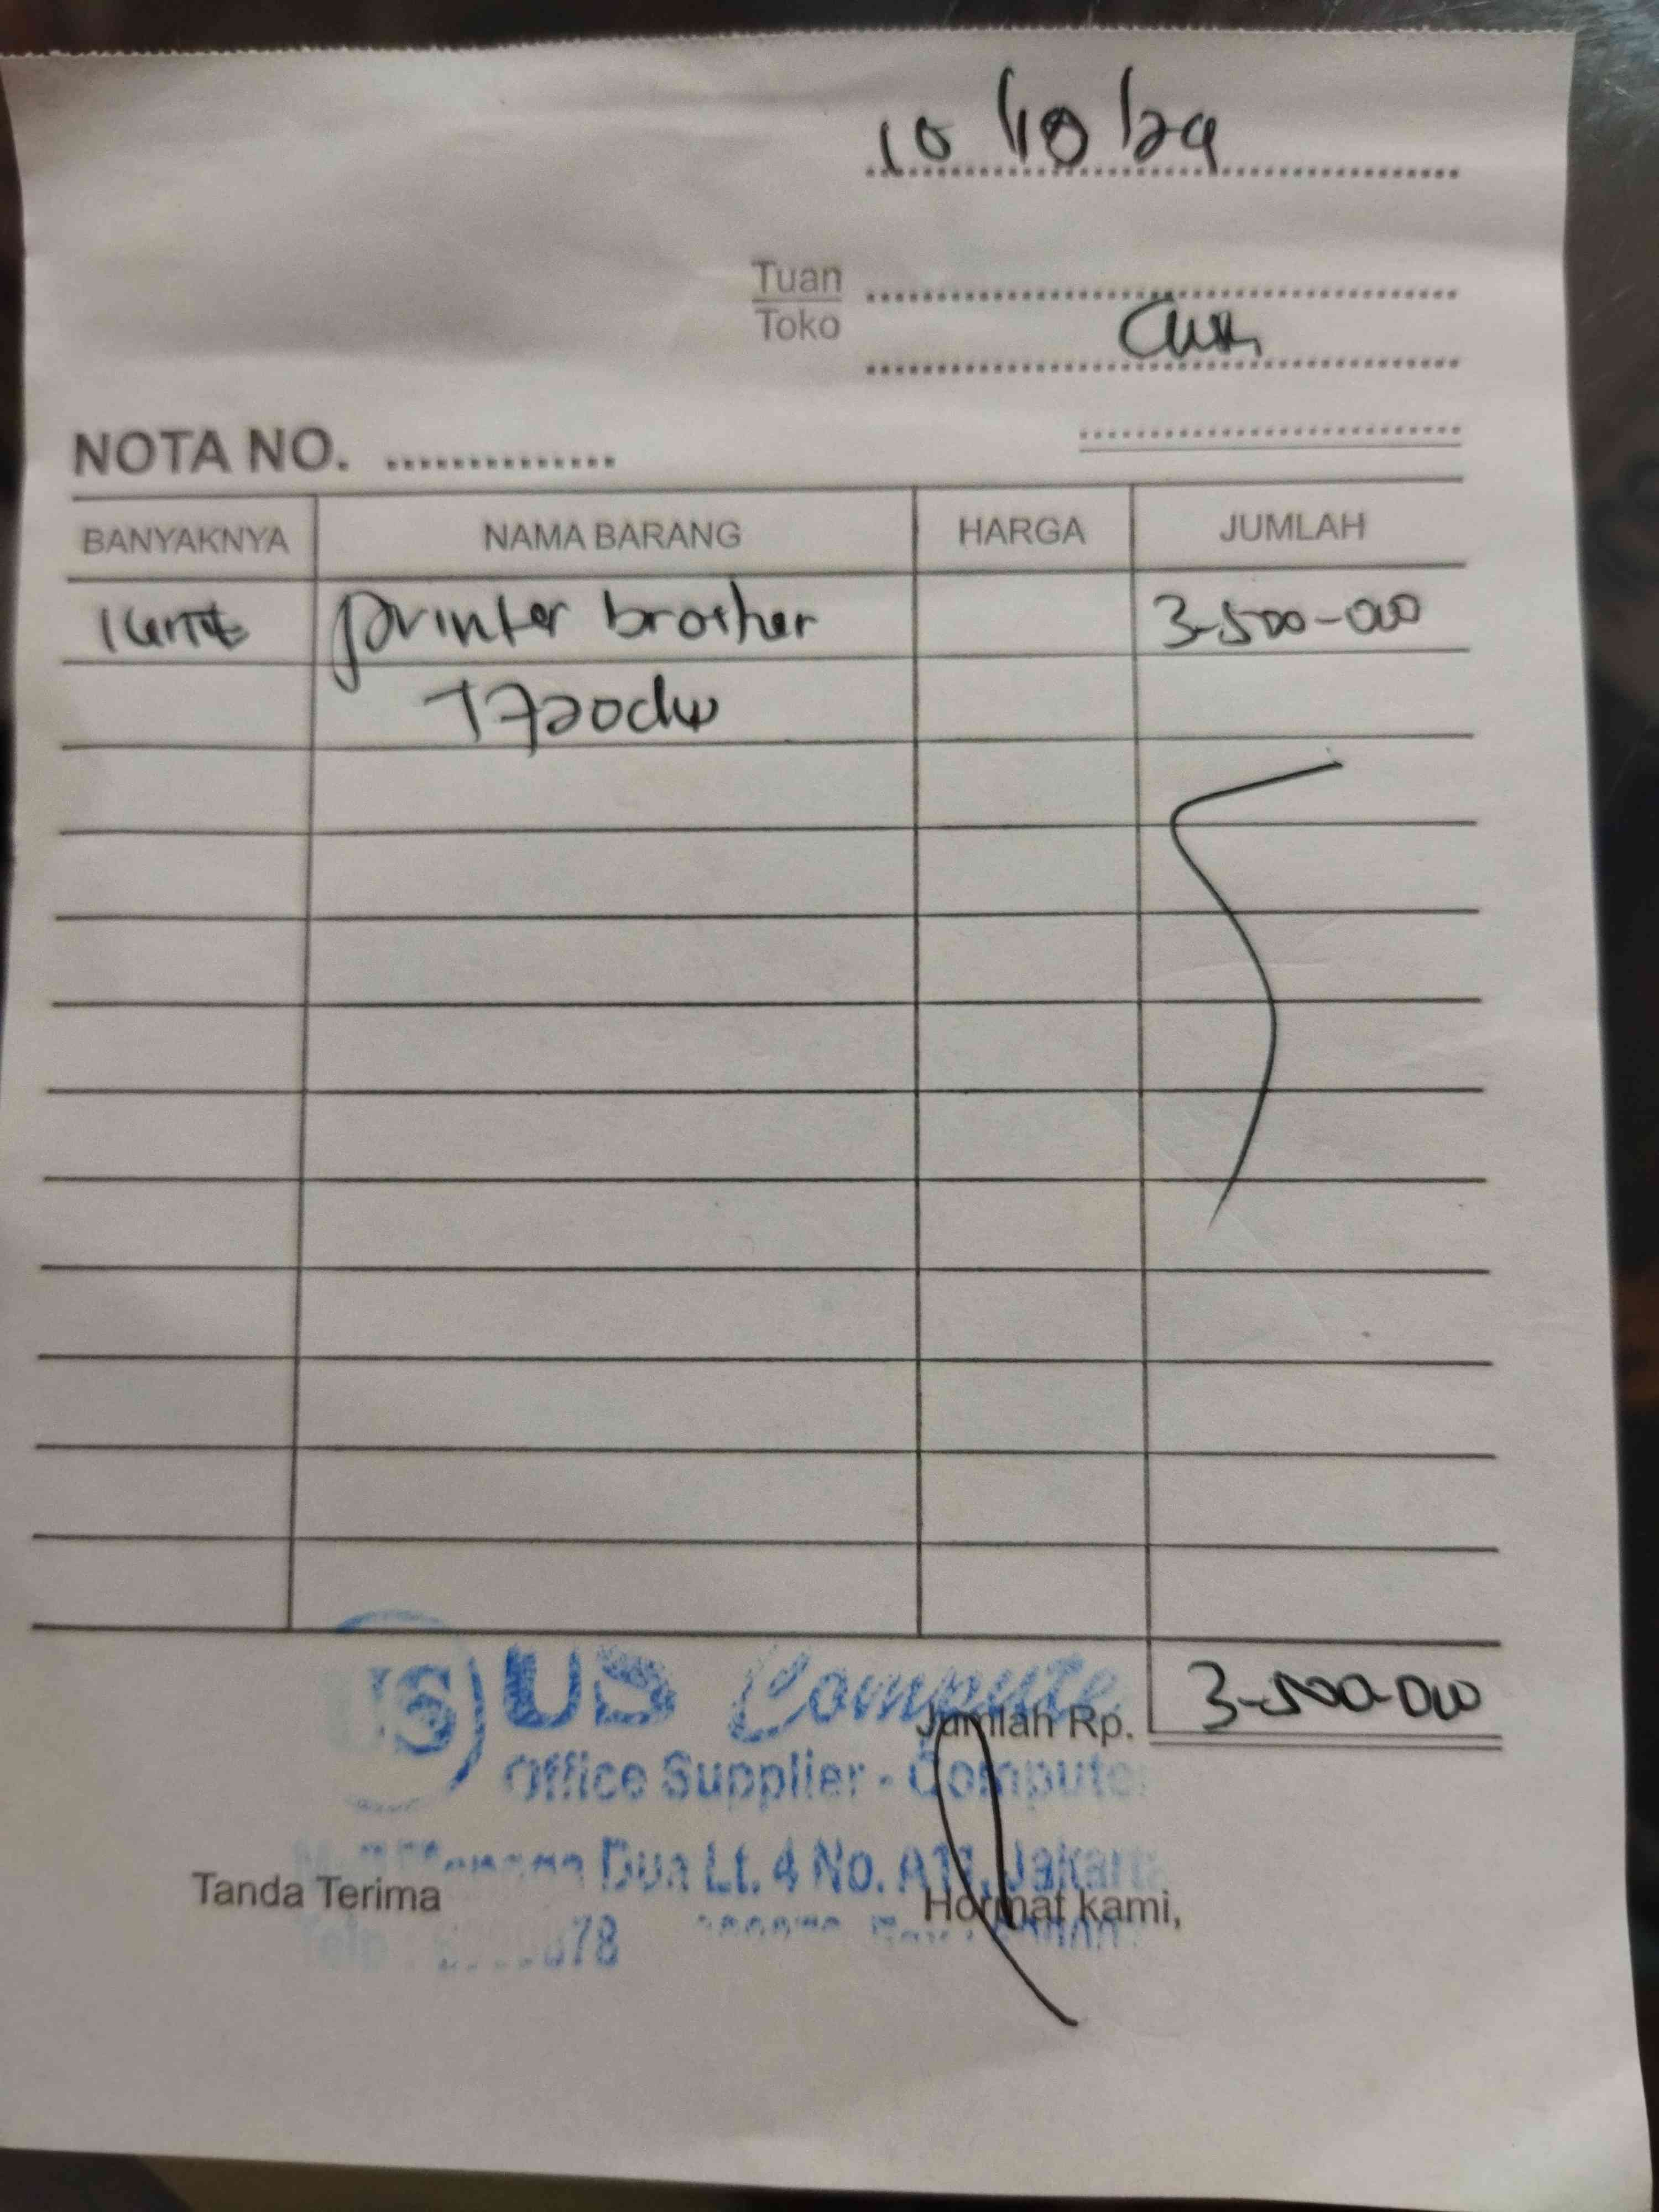 10/10/24
Tuan
Toko
NOTA NO. ..............
BANYAKNYA NAMA BARANG HARGA JUMLAH
1 unit printer brother 3-500-000
T720dw
US US Compute
Jumlah Rp. 3-500-000
Office Supplier - Compute
Dua Lt. 4 No. A11, Jakarta
Tanda Terima Hormat kami,
Telp